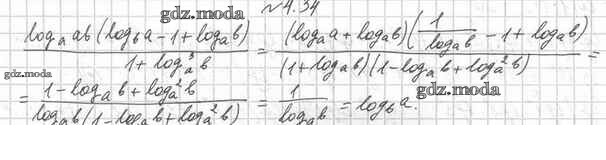 gdz.moda
№4.34
gdz.moda
(log_a ab (log_b a - 1 + log_a b)) / (1 + log_a^3 b) = ((log_a a + log_a b)(1/(log_a b) - 1 + log_a b)) / ((1 + log_a b)(1 - log_a b + log_a^2 b)) =
gdz.moda
= (1 - log_a b + log_a^2 b) / (log_a b (1 - log_a b + log_a^2 b)) = 1/(log_a b) = log_b a.
gdz.moda
gdz.moda